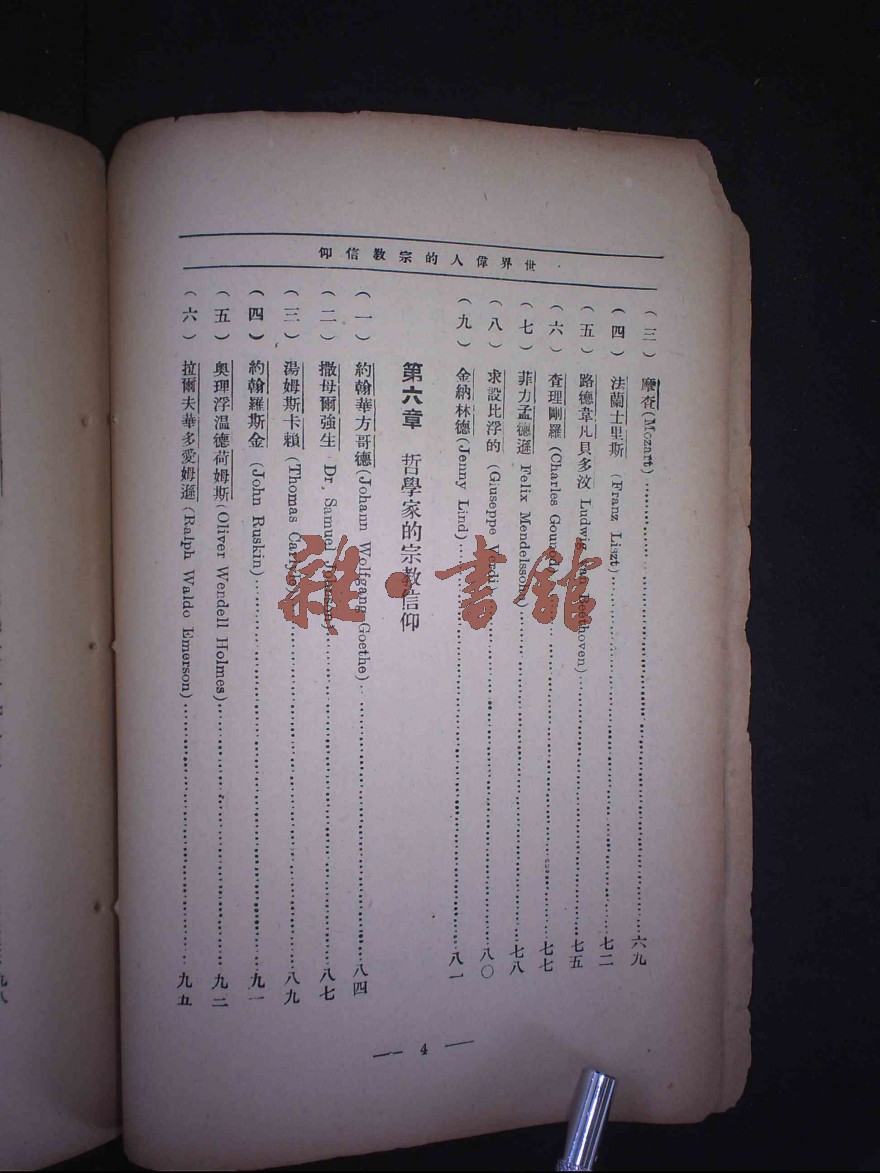 世界偉人的宗教信仰
(三) 摩查(Mozart)……六九
(四) 法蘭士里斯 (Franz Liszt)……七二
(五) 路德韋凡貝多汶 Ludwig van Beethoven)……七五
(六) 查理剛羅 (Charles Gounod)……七七
(七) 菲力孟德遜 Felix Mendelssohn)……七八
(八) 求設比浮的 (Giuseppe Verdi)……八〇
(九) 金納林德(Jenny Lind)……八一
第六章 哲學家的宗教信仰
(一) 約翰華方哥德(Johann Wolfgang Goethe)……八四
(二) 撒母爾強生 Dr. Samuel Johnson)……八七
(三) 湯姆斯卡賴 (Thomas Carlyle)……八九
(四) 約翰羅斯金 (John Ruskin)……九一
(五) 奧理浮溫德荷姆斯(Oliver Wendell Holmes)……九二
(六) 拉爾夫華多愛姆遜(Ralph Waldo Emerson)……九五
— 4 —
雜·書館